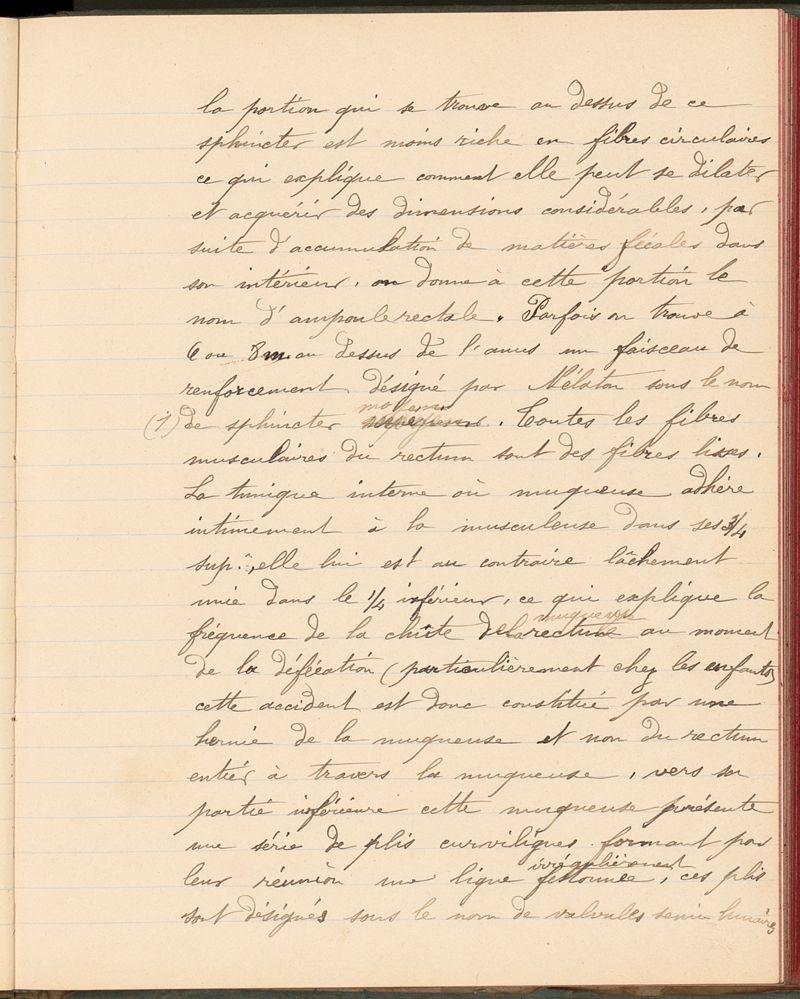 la portion qui se trouve au dessus de ce
sphincter est moins riche en fibres circulaires
ce qui explique comment elle peut se dilater
et acquérir des dimensions considérables, par
suite d'accumulation de matières fécales dans
son intérieur, on donne à cette portion le
nom d'ampoule rectale. Parfois on trouve à
6 ou 8 m au dessus de l'anus un faisceau de
renforcement désigné par Nélaton sous le nom
(1) de sphincter moyen. Toutes les fibres
musculaires du rectum sont des fibres lisses.
La tunique interne où muqueuse adhère
intimement à la musculeuse dans ses 3/4
sup.r, elle lui est au contraire lâchement
unie dans le 1/4 inférieur, ce qui explique la
muqueuse
fréquence de la chûte de la rectum au moment
de la déféćation (particulièrement chez les enfants)
cette accident est donc constitué par une
hernie de la muqueuse et non du rectum
entier à travers la muqueuse, vers sa
partie inférieure cette muqueuse présente
une série de plis curvilignes formant par
irrégulièrement
leur réunion une ligne festonnée, ces plis
sont désignés sous le nom de valvules semi lunaires